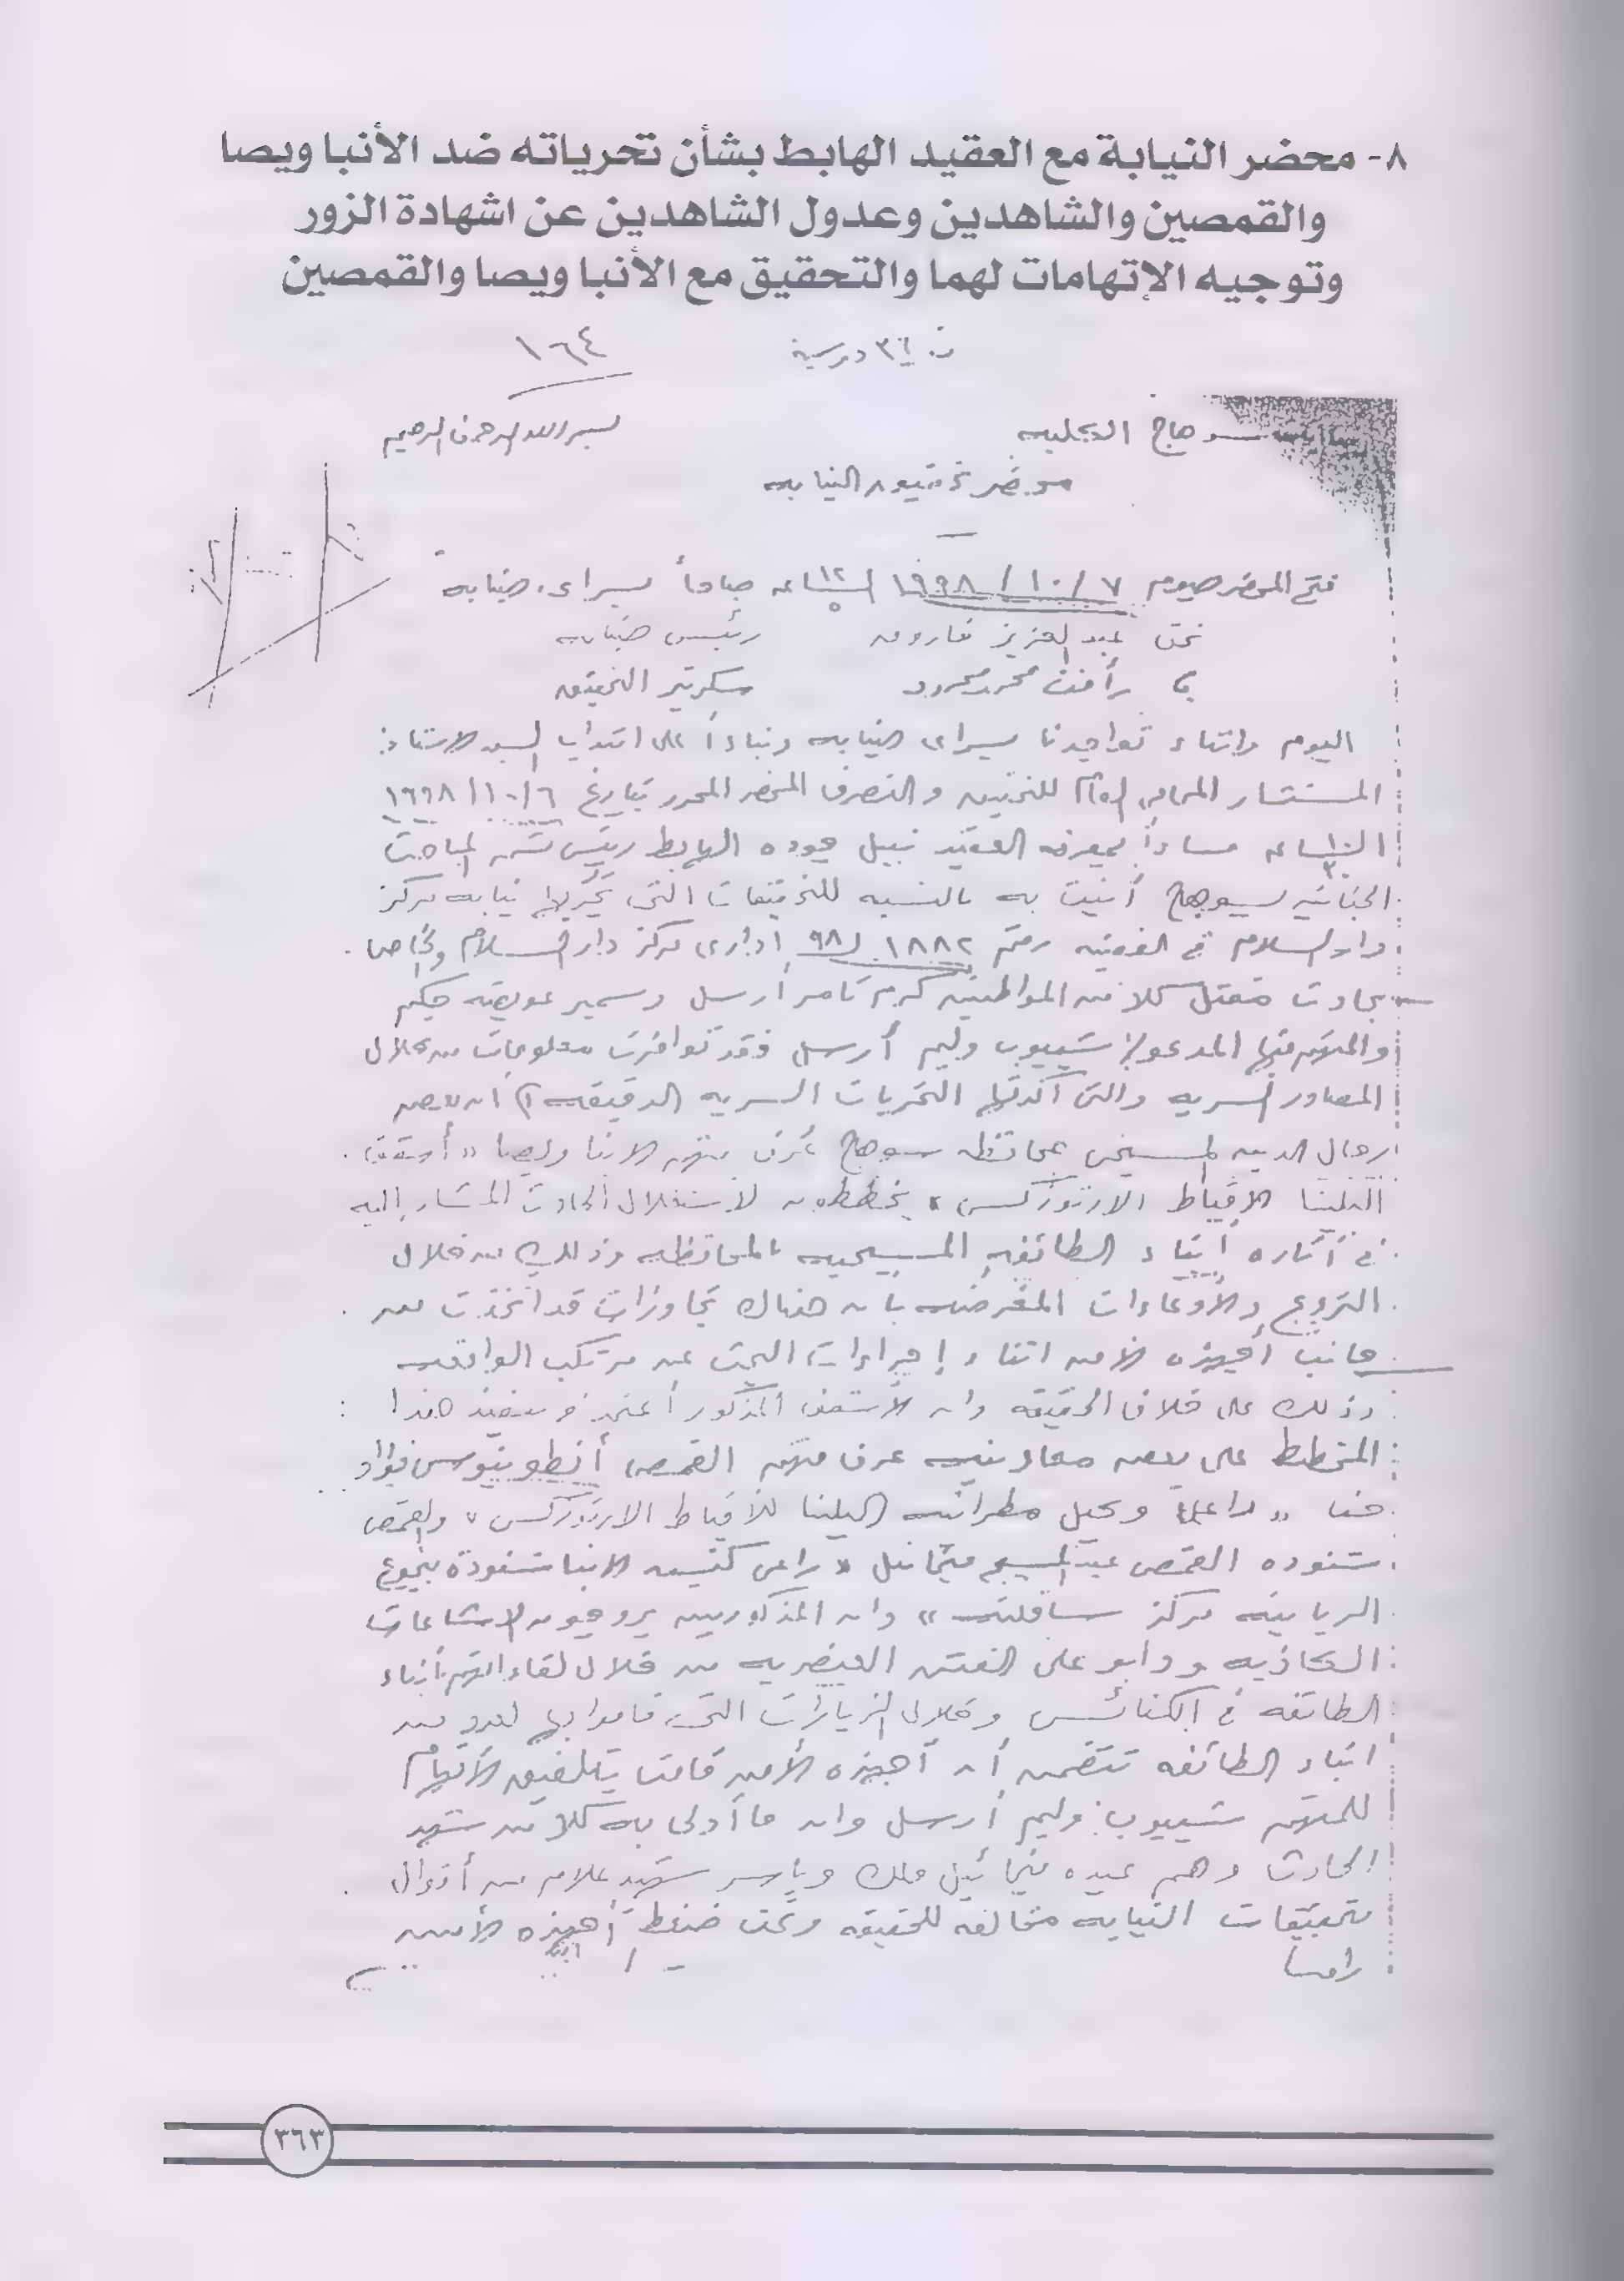 ٨- محضر النيابة مع العقيد الهابط بشأن تحرياته ضد الأنبا ويصا
والقمصين والشاهدين وعدول الشاهدين عن اشهادة الزور
وتوجيه الإتهامات لهما والتحقيق مع الأنبا ويصا والقمصين
١٦٤
بسم الله الرحمن الرحيم
سوهاج الكليه
محضر تحقيق النيابه
فتح المحضر اليوم ٧/١٠/١٩٩٨ الساعه ١٢ صباحاً بسراى النيابه
نحن عبد العزيز فاروق رئيس النيابه
رأفت محمد محمود سكرتير التحقيق
اليوم واثناء تواجدنا بسراى النيابه وبناءاً على انتداب السيد الاستاذ
المستشار المحامى العام للتحقيق والتصرف المحضر المحرر بتاريخ ٦/١٠/١٩٩٨
الساعه مساءاً بمعرفه العقيد نبيل الهابط رئيس المباحث
الجنائيه بسوهاج أثبت به بالنسبه للتحقيقات التى تجريها نيابه مركز
دار السلام فى القضيه رقم ١٨٨٢ لـ ٩٨ ادارى مركز دار السلام والخاص
بحادث مقتل كلا من المواطنين كرم تامر أرسل وسمير عويضه حكيم
والمتهم فيها المدعو/ شيبوب وليم أرسل فقد توافرت معلومات من خلال
المصادر السريه والتى اكدتها التحريات السريه الدقيقه ان بعض
رجال الدين المسيحى بمحافظه سوهاج عرف منهم الانبا ويصا « أسقف
البلينا للاقباط الارثوذكس » يخططون لاستغلال الحادث المشار اليه
فى أثاره أبناء الطائفه المسيحيه بالمحافظه وذلك من خلال
الترويج والادعاءات المغرضه بان هناك تجاوزات قد اتخذت من
جانب أجهزه الامن اثناء إجراءات البحث عن مرتكب الواقعه
وذلك على خلاف الحقيقه وان الأسقف المذكور أعتمد فى تنفيذ هذا
المخطط على بعض معاونيه عرف منهم القمص أنطونيوس فؤاد
حنا « وكيل مطرانيه البلينا للأقباط الارثوذكس » والقمص
شنوده القمص عبد المسيح ميخائيل « راعى كنيسه الانبا شنودة بنجوع
مركز ساقلته » وان المذكورين يروجون الاشاعات
الكاذبه ودابو على الفتن العنصريه من خلال لقاءاتهم بأبناء
الطائفه فى الكنائس وخلال الزيارات التى قاموا بها لعدد من
ابناء الطائفه تتضمن أن أجهزه الأمن قامت بتلفيق الأتهام
للمتهم شيبوب وليم أرسل وان ما أدلى به كلا من شهود
الحادث وهم عبده ميخائيل ملك وياسر من أقوال
بتحقيقات النيابه مخالفه للحقيقه وتحت ضغط أجهزه الأمن